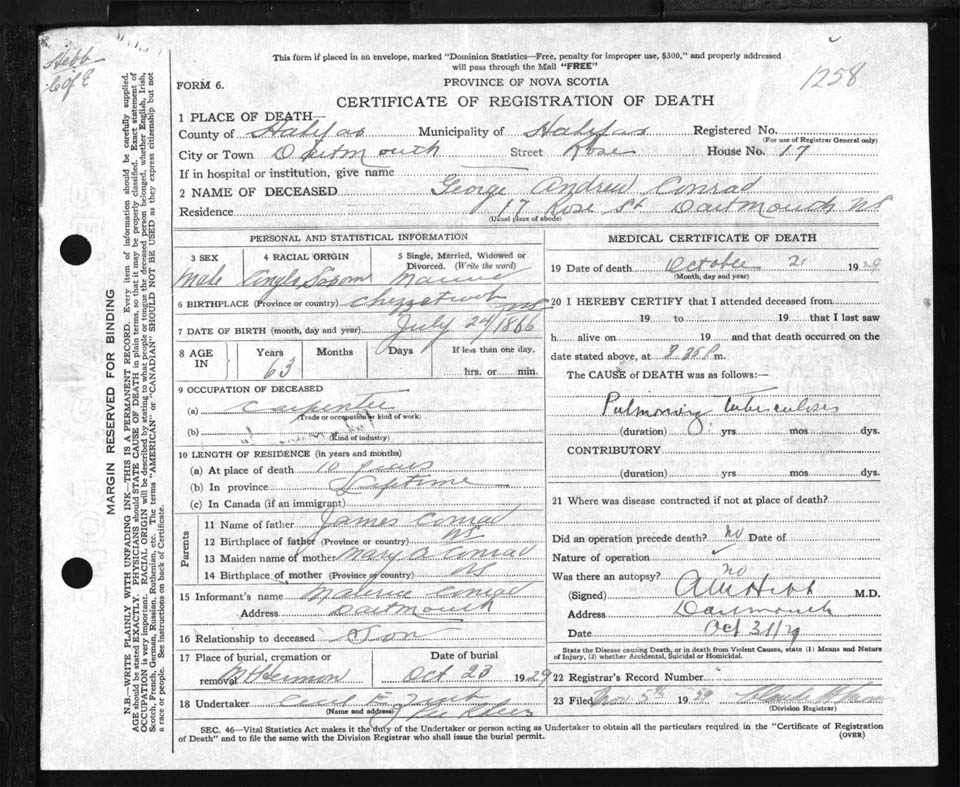 This form if placed in an envelope, marked "Dominion Statistics—Free, penalty for improper use, $300," and properly addressed
will pass through the Mail "FREE"
Hebb
C of E
1258
FORM 6.
PROVINCE OF NOVA SCOTIA
CERTIFICATE OF REGISTRATION OF DEATH
1 PLACE OF DEATH
County of Halifax Municipality of Halifax Registered No.
(For use of Registrar General only)
City or Town Dartmouth Street Rose House No. 17
If in hospital or institution, give name
2 NAME OF DECEASED George Andrew Conrad
Residence 17 Rose St Dartmouth NS
(Usual place of abode)
PERSONAL AND STATISTICAL INFORMATION
3 SEX 4 RACIAL ORIGIN 5 Single, Married, Widowed or Divorced. (Write the word)
Male Anglo Saxon
6 BIRTHPLACE (Province or country) NS
7 DATE OF BIRTH (month, day and year) July 24/1866
8 AGE IN Years Months Days If less than one day,
63 hrs. or min.
9 OCCUPATION OF DECEASED
(a) Carpenter
(Trade or occupation or kind of work)
(b)
(Kind of industry)
10 LENGTH OF RESIDENCE (in years and months)
(a) At place of death 10 years
(b) In province Lifetime
(c) In Canada (if an immigrant)
Parents
11 Name of father James Conrad
12 Birthplace of father (Province or country) NS
13 Maiden name of mother Mary A Conrad
14 Birthplace of mother (Province or country) NS
15 Informant's name Conrad
Address Dartmouth
16 Relationship to deceased Son
17 Place of burial, cremation or Date of burial
removal Mt Hermon Oct 23 1929
18 Undertaker
(Name and address)
MEDICAL CERTIFICATE OF DEATH
19 Date of death October 21 1929
(Month, day and year)
20 I HEREBY CERTIFY that I attended deceased from
19 to 19 that I last saw
h alive on 19 and that death occurred on the
date stated above, at m.
The CAUSE of DEATH was as follows:—
Pulmonary tuberculosis
(duration) yrs mos dys.
CONTRIBUTORY
(duration) yrs mos dys.
21 Where was disease contracted if not at place of death?
Did an operation precede death? no Date of
Nature of operation
Was there an autopsy? no
(Signed) Hebb M.D.
Address Dartmouth
Date Oct
State the Disease causing Death, or in death from Violent Causes, state (1) Means and Nature of Injury, (2) whether Accidental, Suicidal or Homicidal.
22 Registrar's Record Number
23 Filed 5th 19
(Division Registrar)
SEC. 46—Vital Statistics Act makes it the duty of the Undertaker or person acting as Undertaker to obtain all the particulars required in the "Certificate of Registration
of Death" and to file the same with the Division Registrar who shall issue the burial permit. (OVER)
MARGIN RESERVED FOR BINDING
N.B.—WRITE PLAINLY WITH UNFADING INK—THIS IS A PERMANENT RECORD. Every item of information should be carefully supplied.
AGE should be stated EXACTLY. PHYSICIANS should STATE CAUSE OF DEATH in plain terms, so that it may be properly classified. Exact statement of
OCCUPATION is very important. RACIAL ORIGIN will be described by stating to what people or tongue the deceased person belonged, whether English, Irish,
Scotch, French, German, Russian, Ruthenian, etc. The terms "AMERICAN" or "CANADIAN" SHOULD NOT BE USED as they express citizenship but not
a race or people. See instructions on back of Certificate.